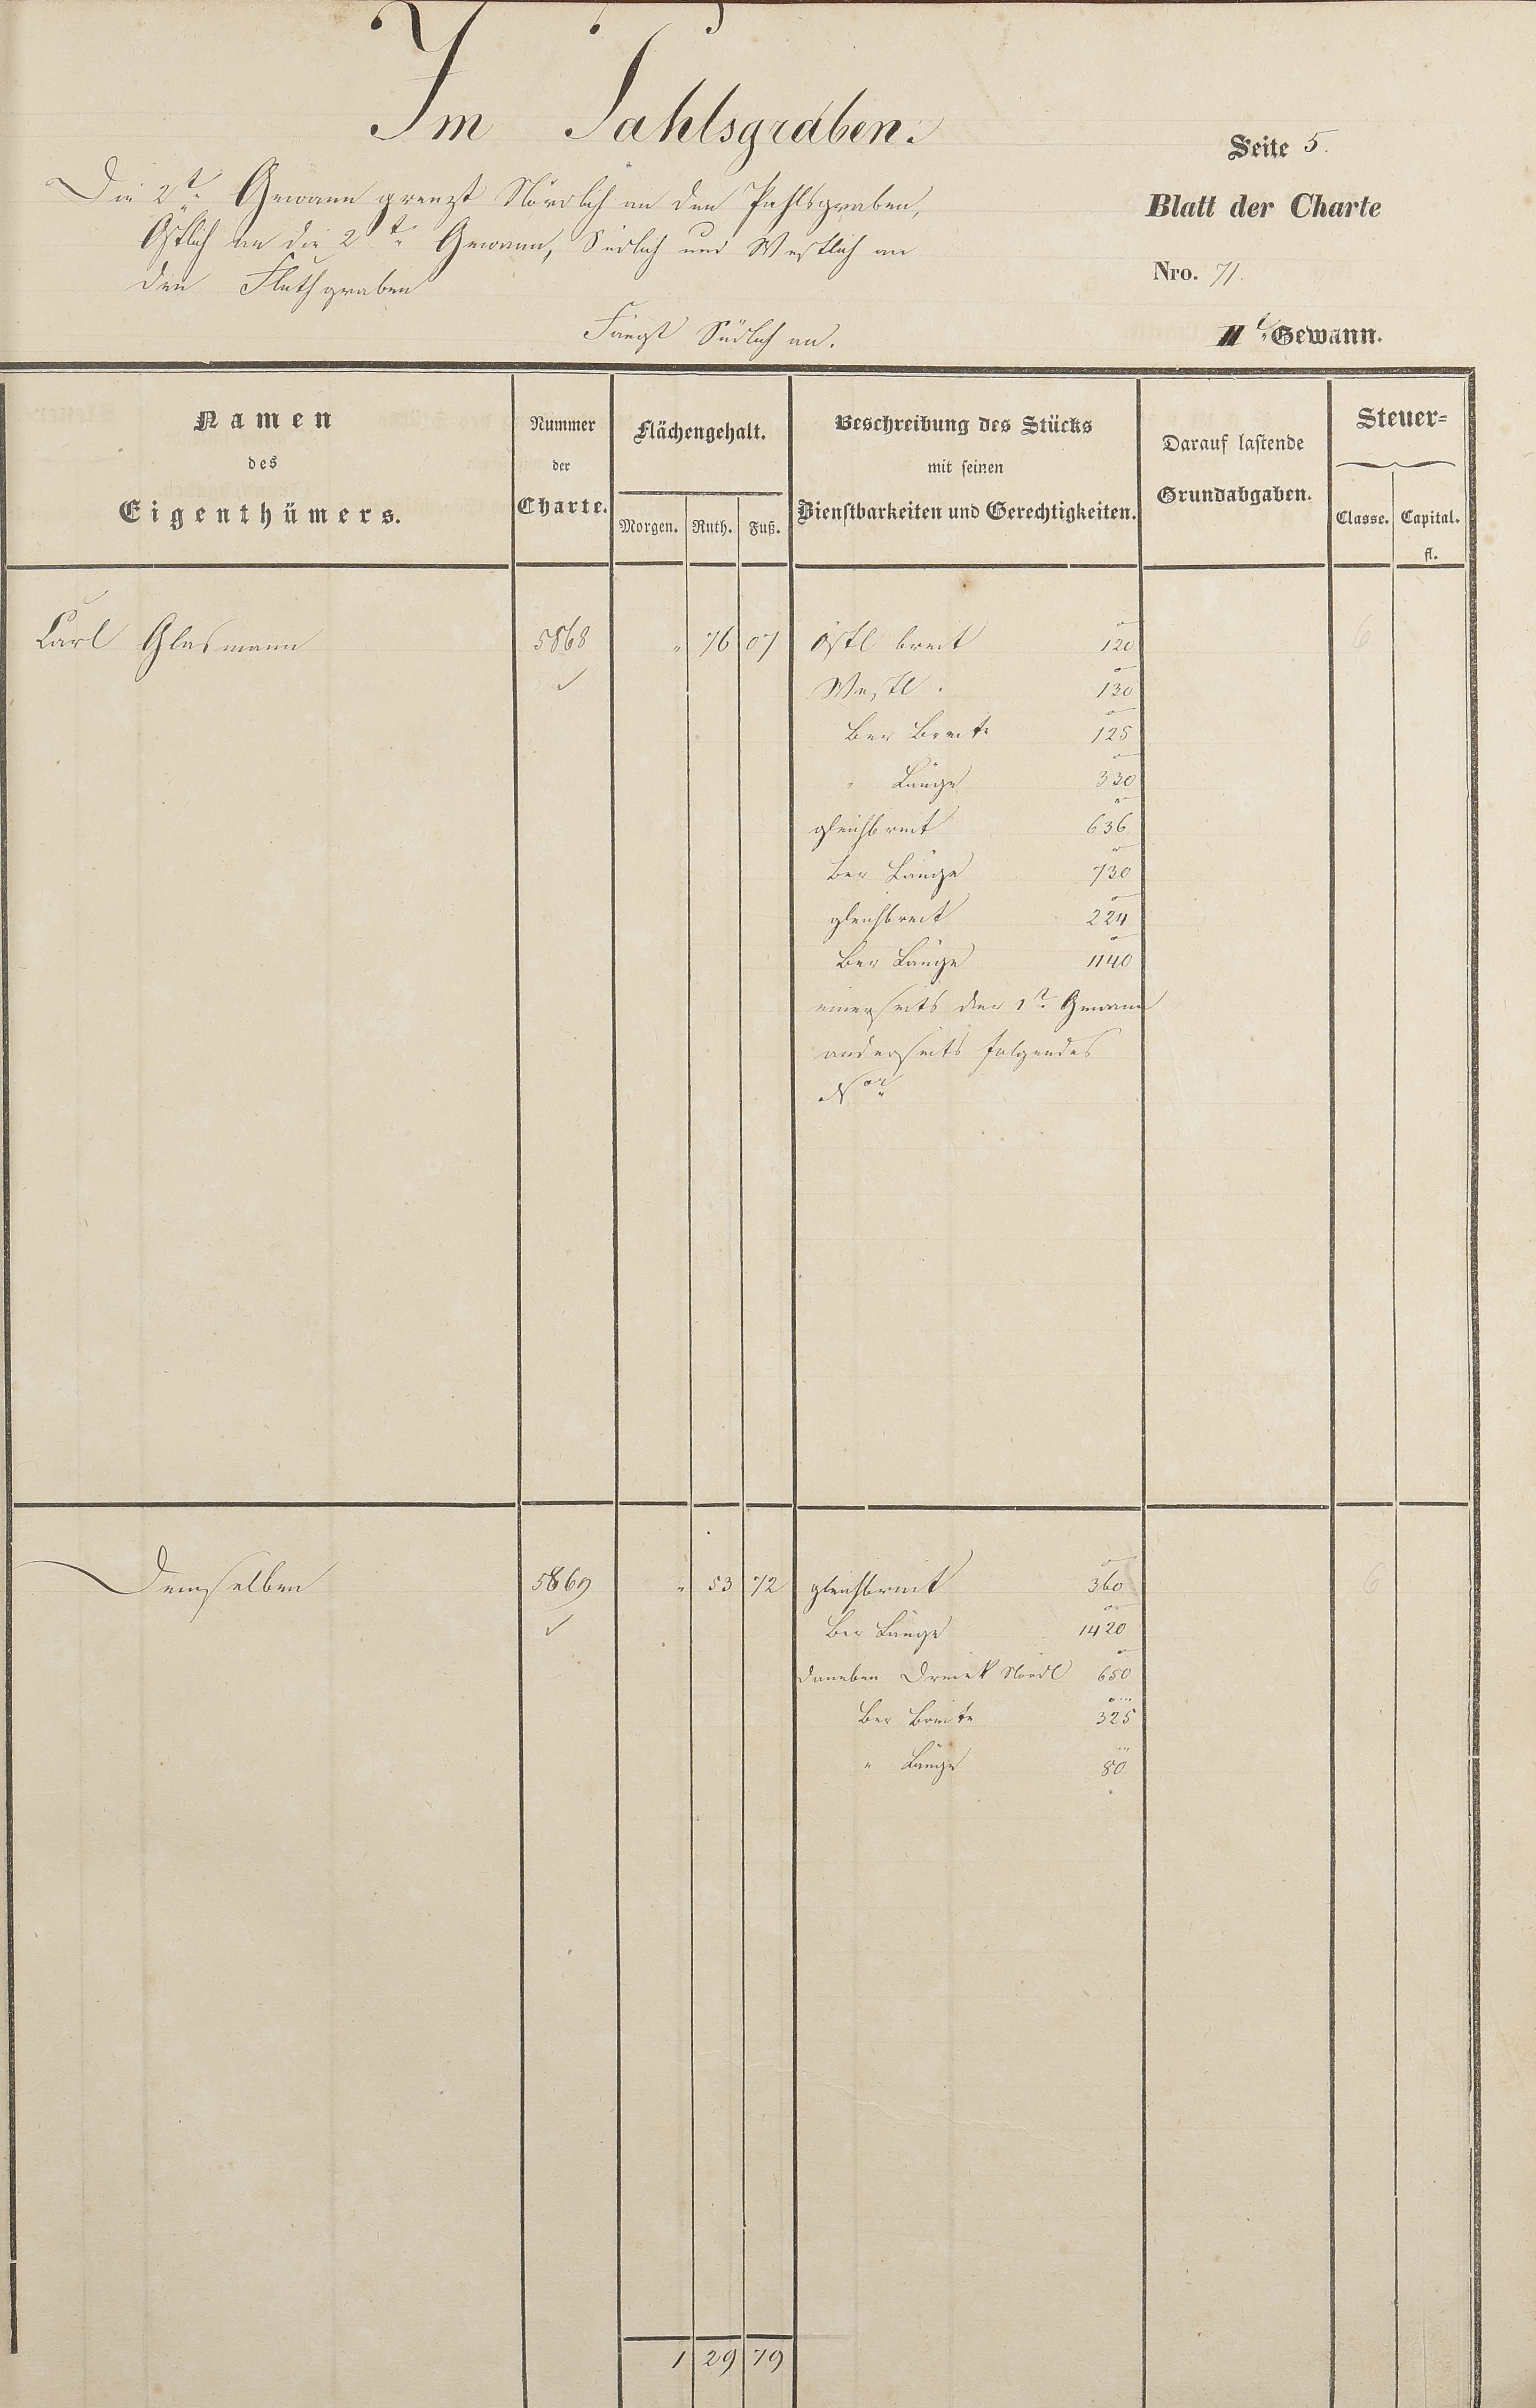 Im Pahlsgraben.
Seite 5.
Die 2te Gewann grenzt Nördlich an den Pahlsgraben,
Blatt der Charte
Östlich an die 2te Gewann, Südlich und Westlich an
den Fluthgraben
Nro. 71.
Fängt Südlich an.
IIte Gewann.
Namen
des
Eigenthümers.
Nummer
der
Charte.
Flächengehalt.
Morgen. Ruth. Fuß.
Beschreibung des Stücks
mit seinen
Dienstbarkeiten und Gerechtigkeiten.
Darauf lastende
Grundabgaben.
Steuer=
Classe. Capital.
fl.
Carl Glasmann 5868 " 76 07 Östl breit 120 6
Westl. 130
Ber Breite 125
" Länge 330
gleichbreit 636
Ber Länge 730
gleichbreit 224
Ber Länge 1140
einerseits der 1te Gewann
anderseits folgendes
Nor
Demselben 5869 " 53 72 gleichbreit 360 6
Ber Länge 1420
daneben Dreieck Nördl 650
Ber Breite 325
" Länge 80
1 29 79